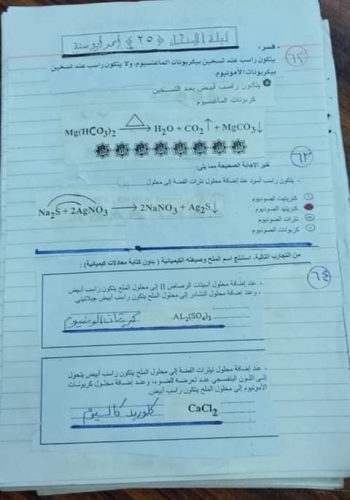 ليلة الامتحان (٢٥) أحمد أبو سنة
٦٢
- فسر:
يتكون راسب عند تسخين بيكربونات الماغنسيوم, ولا يتكون راسب عند تسخين
بيكربونات الأمونيوم.
يتكون راسب أبيض بعد التسخين
كربونات الماغنسيوم
Mg(HCO3)2 → H2O + CO2↑ + MgCO3↓
٦٣
تخير الإجابة الصحيحة مما يلى:
- يتكون راسب أسود عند إضافة محلول نترات الفضة إلى محلول
كبريتيد الصوديوم
كبريتيت الصوديوم
نترات الصوديوم
كربونات الصوديوم
Na2S + 2AgNO3 → 2NaNO3 + Ag2S↓
٦٤
من التجارب التالية, استنتج اسم الملح وصيغته الكيميائية (بدون كتابة معادلات كيميائية):
- عند إضافة محلول أسيتات الرصاص II إلى محلول الملح يتكون راسب أبيض
, وعند إضافة محلول النشادر إلى محلول الملح يتكون راسب أبيض جيلاتيني
كبريتات الومنيوم AL2(SO4)3
- عند إضافة محلول نيترات الفضة إلى محلول الملح يتكون راسب أبيض يتحول
إلى اللون البنفسجي عند تعرضه للضوء, وعند إضافة محلول كربونات
الأمونيوم إلى محلول الملح يتكون راسب أبيض.
كلوريد كالسيوم CaCl2